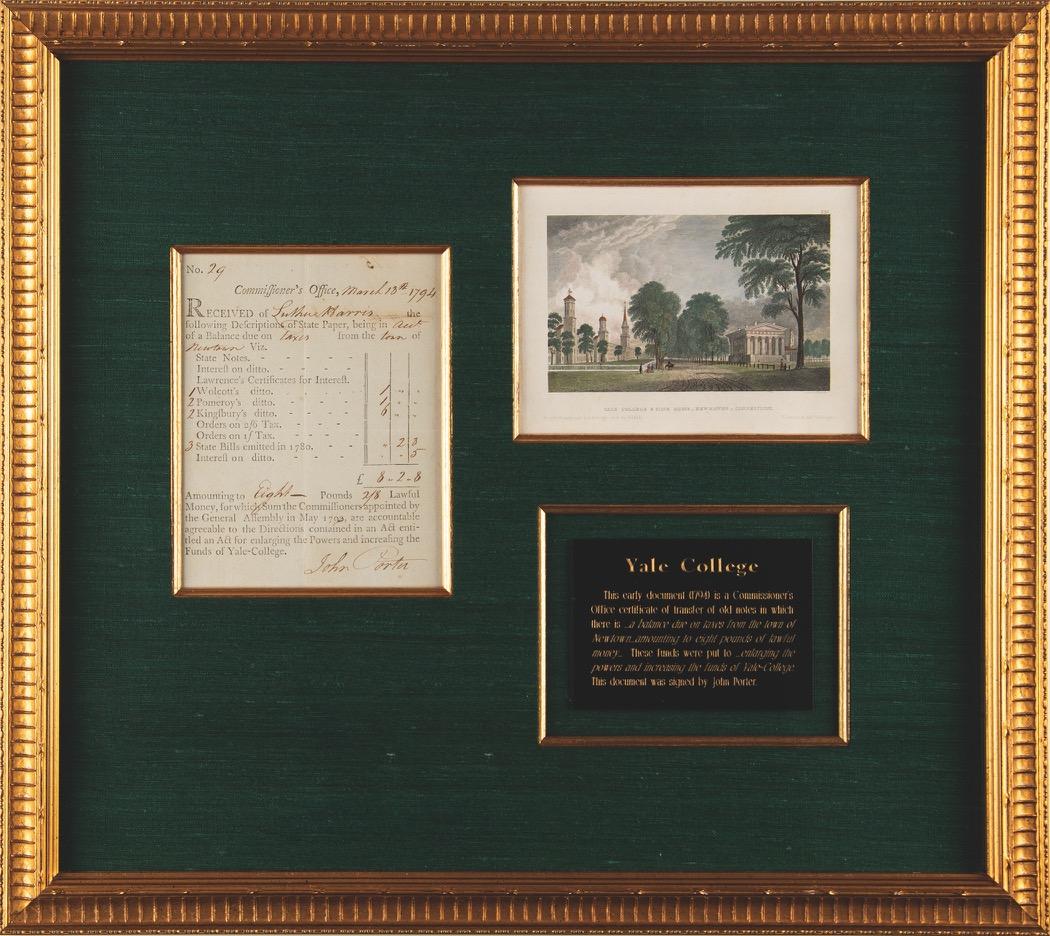 No. 29
Commissioner's Office, March 13th 1794
RECEIVED of Luther Harris the
following Descriptions of State Paper, being in
of a Balance due on taxes from the town of
Newtown Viz.
State Notes. - - - - -
Interest on ditto. - - - -
Lawrence's Certificates for Interest.
1 Wolcott's ditto. - - - - 1 " "
2 Pomeroy's ditto. - - - - 1 " "
2 Kingsbury's ditto. - - - - 6 " "
Orders on 2/6 Tax. - - - -
Orders on 1/ Tax. - - - -
3 State Bills emitted in 1780. - - " 2 3
Interest on ditto. - - - - 5
£ 8 - 2 - 8
Amounting to Eight Pounds 2/8 Lawful
Money, for which Sum the Commissioners appointed by
the General Assembly in May 1792, are accountable
agreeable to the Directions contained in an Act enti-
tled an Act for enlarging the Powers and increasing the
Funds of Yale-College.
John Porter
YALE COLLEGE & STATE HOUSE, NEW-HAVEN, CONNECTICUT.
Yale College
This early document (1794) is a Commissioner's
Office certificate of transfer of old notes in which
there is ...a balance due on taxes from the town of
Newtown...amounting to eight pounds of lawful
money... These funds were put to ...enlarging the
powers and increasing the funds of Yale-College.
This document was signed by John Porter.